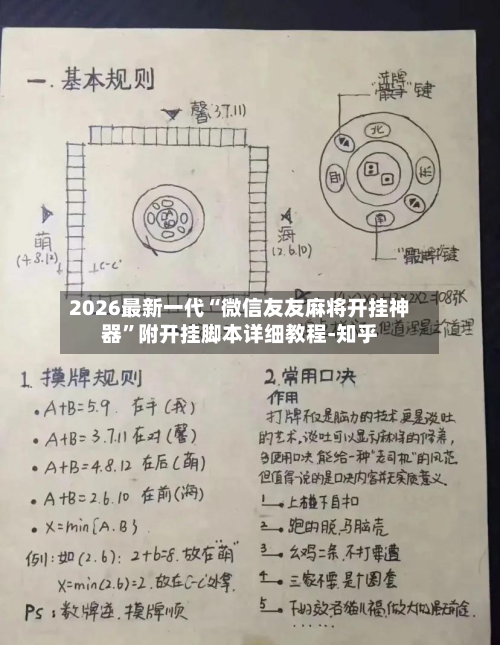 一.基本规则
馨(3.7.11)
"洗牌
骰子"键
北
西
东
南
萌
(4.8.12)
C-C'
海
(2.6.10)
2X2=108张
2026最新一代“微信友友麻将开挂神
器”附开挂脚本详细教程-知乎
但道理是
道理
1.摸牌规则
2.常用口决
作用
• A+B=5.9. 在手(我)
打牌不仅是脑力的技术更是谈吐
• A+B=3.7.11在对(馨)
的艺术,谈吐可以显示麻将的修养,
• A+B=4.8.12 在后(萌)
使用口决,能给一种"老司机"的风范
• A+B=2.6.10 在前(海)
但值得说的是口决内容并无实质意义.
• X=min{A.B}
1—上碰下自扣
例:如(2.6):2+6=8.放在"萌"
2.—跑的脱,马脑壳
X=min(2.6)=2.故在C-C'处拿.
3.—幺鸡二条,不打要遭
4.—三家不要,是个圈套
Ps:数牌逆.摸牌顺
5.
......